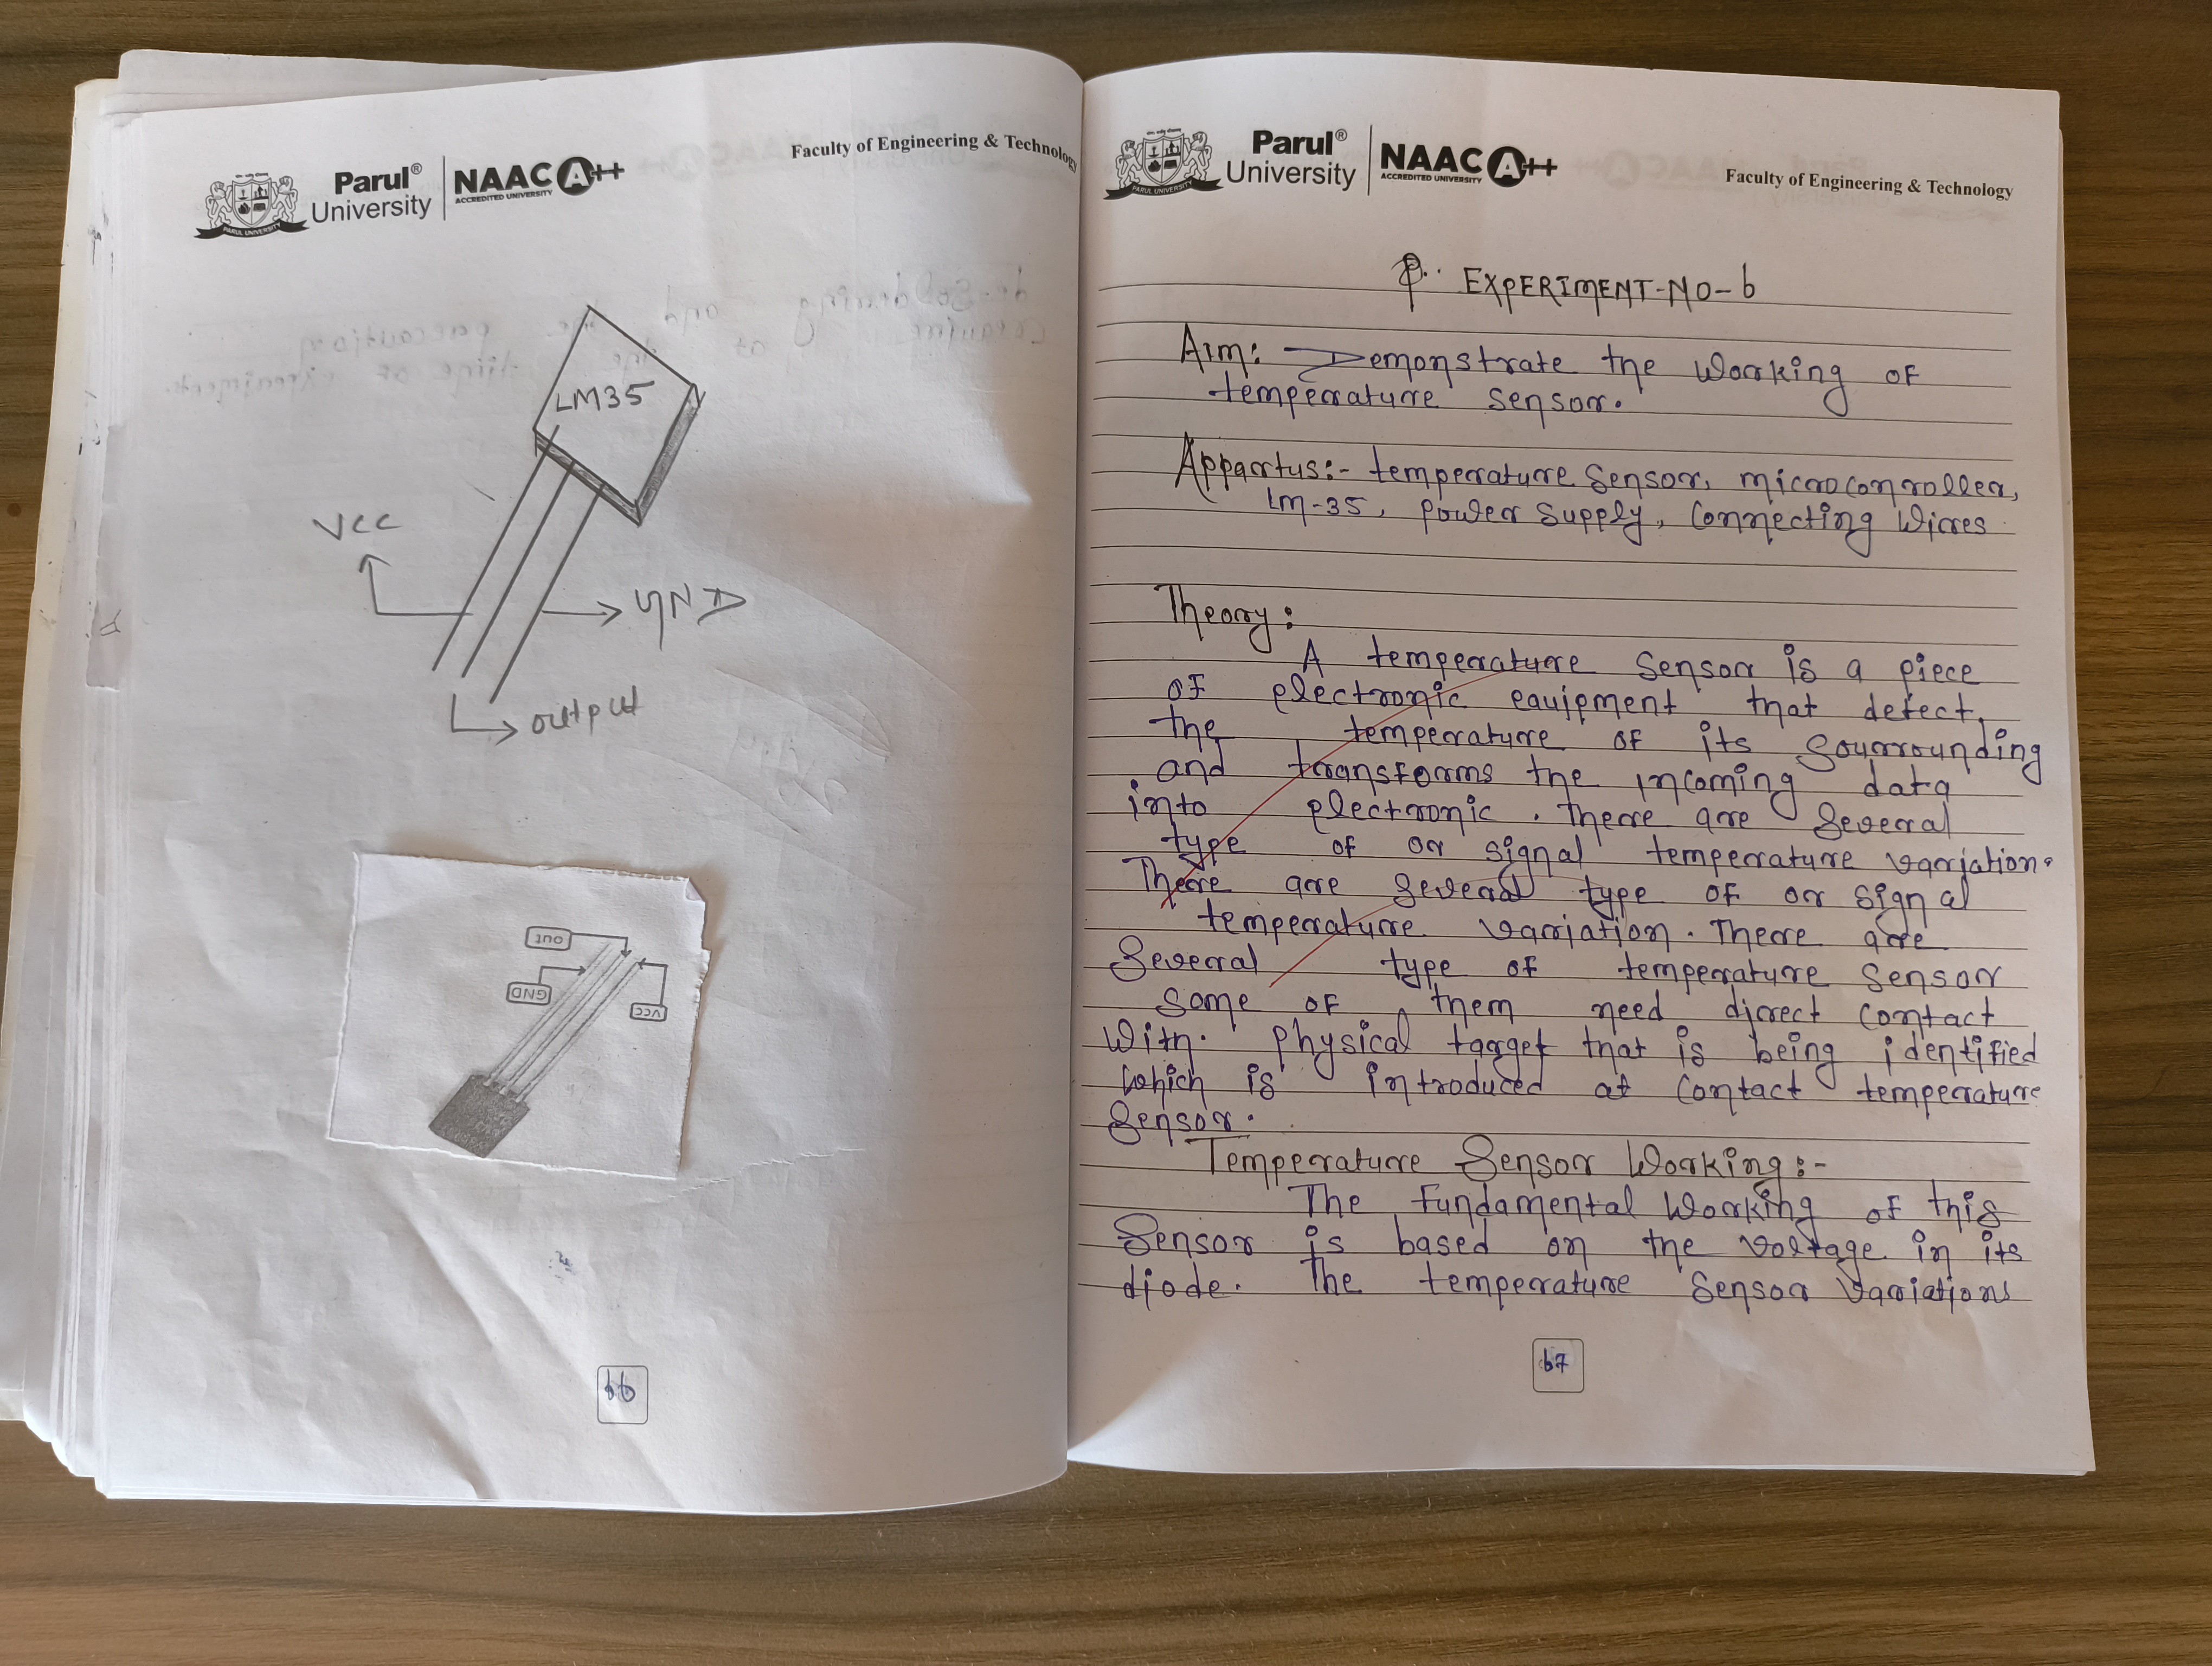 Parul®
University
NAAC A++
ACCREDITED UNIVERSITY
PARUL UNIVERSITY
Faculty of Engineering & Technology
LM35
VCC
GND
output
out
GND
VCC
66
Parul®
University
NAAC A++
ACCREDITED UNIVERSITY
PARUL UNIVERSITY
Faculty of Engineering & Technology
EXPERIMENT-NO-6
Aim: Demonstrate the working of
temperature sensor.
Appartus:- temperature sensor, microconroller,
LM-35, power supply, connecting wires
Theory:
A temperature sensor is a piece
of electronic equipment that detect,
the temperature of its sourrounding
and transforms the incoming data
into electronic. There are several
type of or signal temperature variation.
There are several type of or signal
temperature variation. There are
several type of temperature sensor
some of them need direct contact
with. physical target that is being identified
which is introduced at contact temperature
sensor.
Temperature Sensor Working:-
The fundamental working of this
sensor is based on the voltage in its
diode. The temperature sensor variations
67